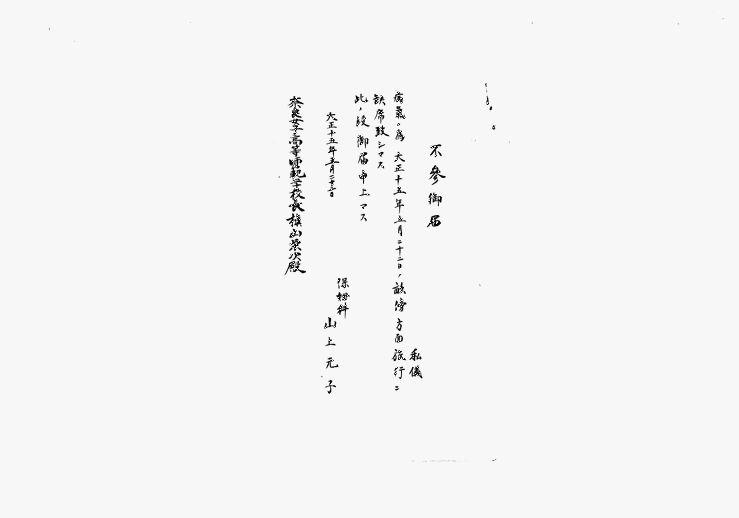 不參御届
私儀
病氣ノ爲大正十五年五月二十二日ノ畝傍方面旅行ニ
缺席致シマス
此ノ段御届申上マス
大正十五年五月二十二日
保姆科
山上元子
奈良女子高等師範學校長槇山榮次殿